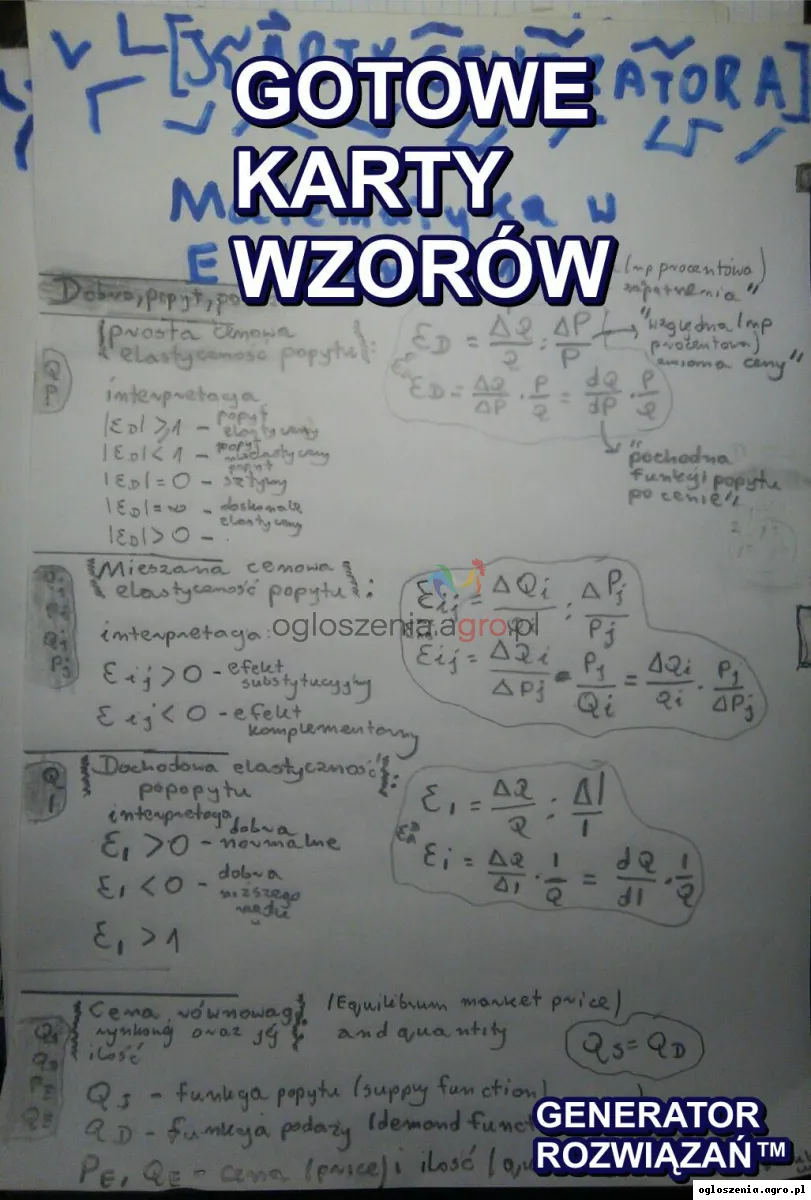 GOTOWE
KARTY
WZORÓW
[ ATORA]
Matematyka w
E
Dobro, popyt, po
(np procentowa)
zapotrzebowania"
prosta cenowa
elastyczność popytu:
Q
P
εD = ΔQ/Q : ΔP/P
"względna (np
procentowa)
zmiana ceny"
εD = ΔQ/ΔP · P/Q = dQ/dP · P/Q
"pochodna
funkcji popytu
po cenie"
interpretacja
|εD| > 1 - popyt elastyczny
|εD| < 1 - popyt nieelastyczny
|εD| = 0 - popyt sztywny
|εD| = ∞ - doskonale elastyczny
|εD| > 0 -
Mieszana cenowa
elastyczność popytu:
Qi
Pj
εij = ΔQi/Qi : ΔPj/Pj
εij = ΔQi/ΔPj · Pj/Qi = ΔQi/Qi · Pj/ΔPj
interpretacja:
εij > 0 - efekt substytucyjny
εij < 0 - efekt komplementarny
ogloszenia.agro.pl
Dochodowa elastyczność:
popopytu
Q
I
εI = ΔQ/Q : ΔI/I
εi = ΔQ/ΔI · I/Q = dQ/dI · I/Q
interpretacja
εI > 0 - dobra normalne
εI < 0 - dobra niższego rzędu
εI > 1
Cena równowagi /Equilibrum market price/
rynkowej oraz jej and quantity
ilość
QS = QD
QS - funkcja popytu (suppy function)
QD - funkcja podaży (demand funct
PE, QE - cena (price) i ilość
GENERATOR
ROZWIĄZAŃ™
ogloszenia.agro.pl